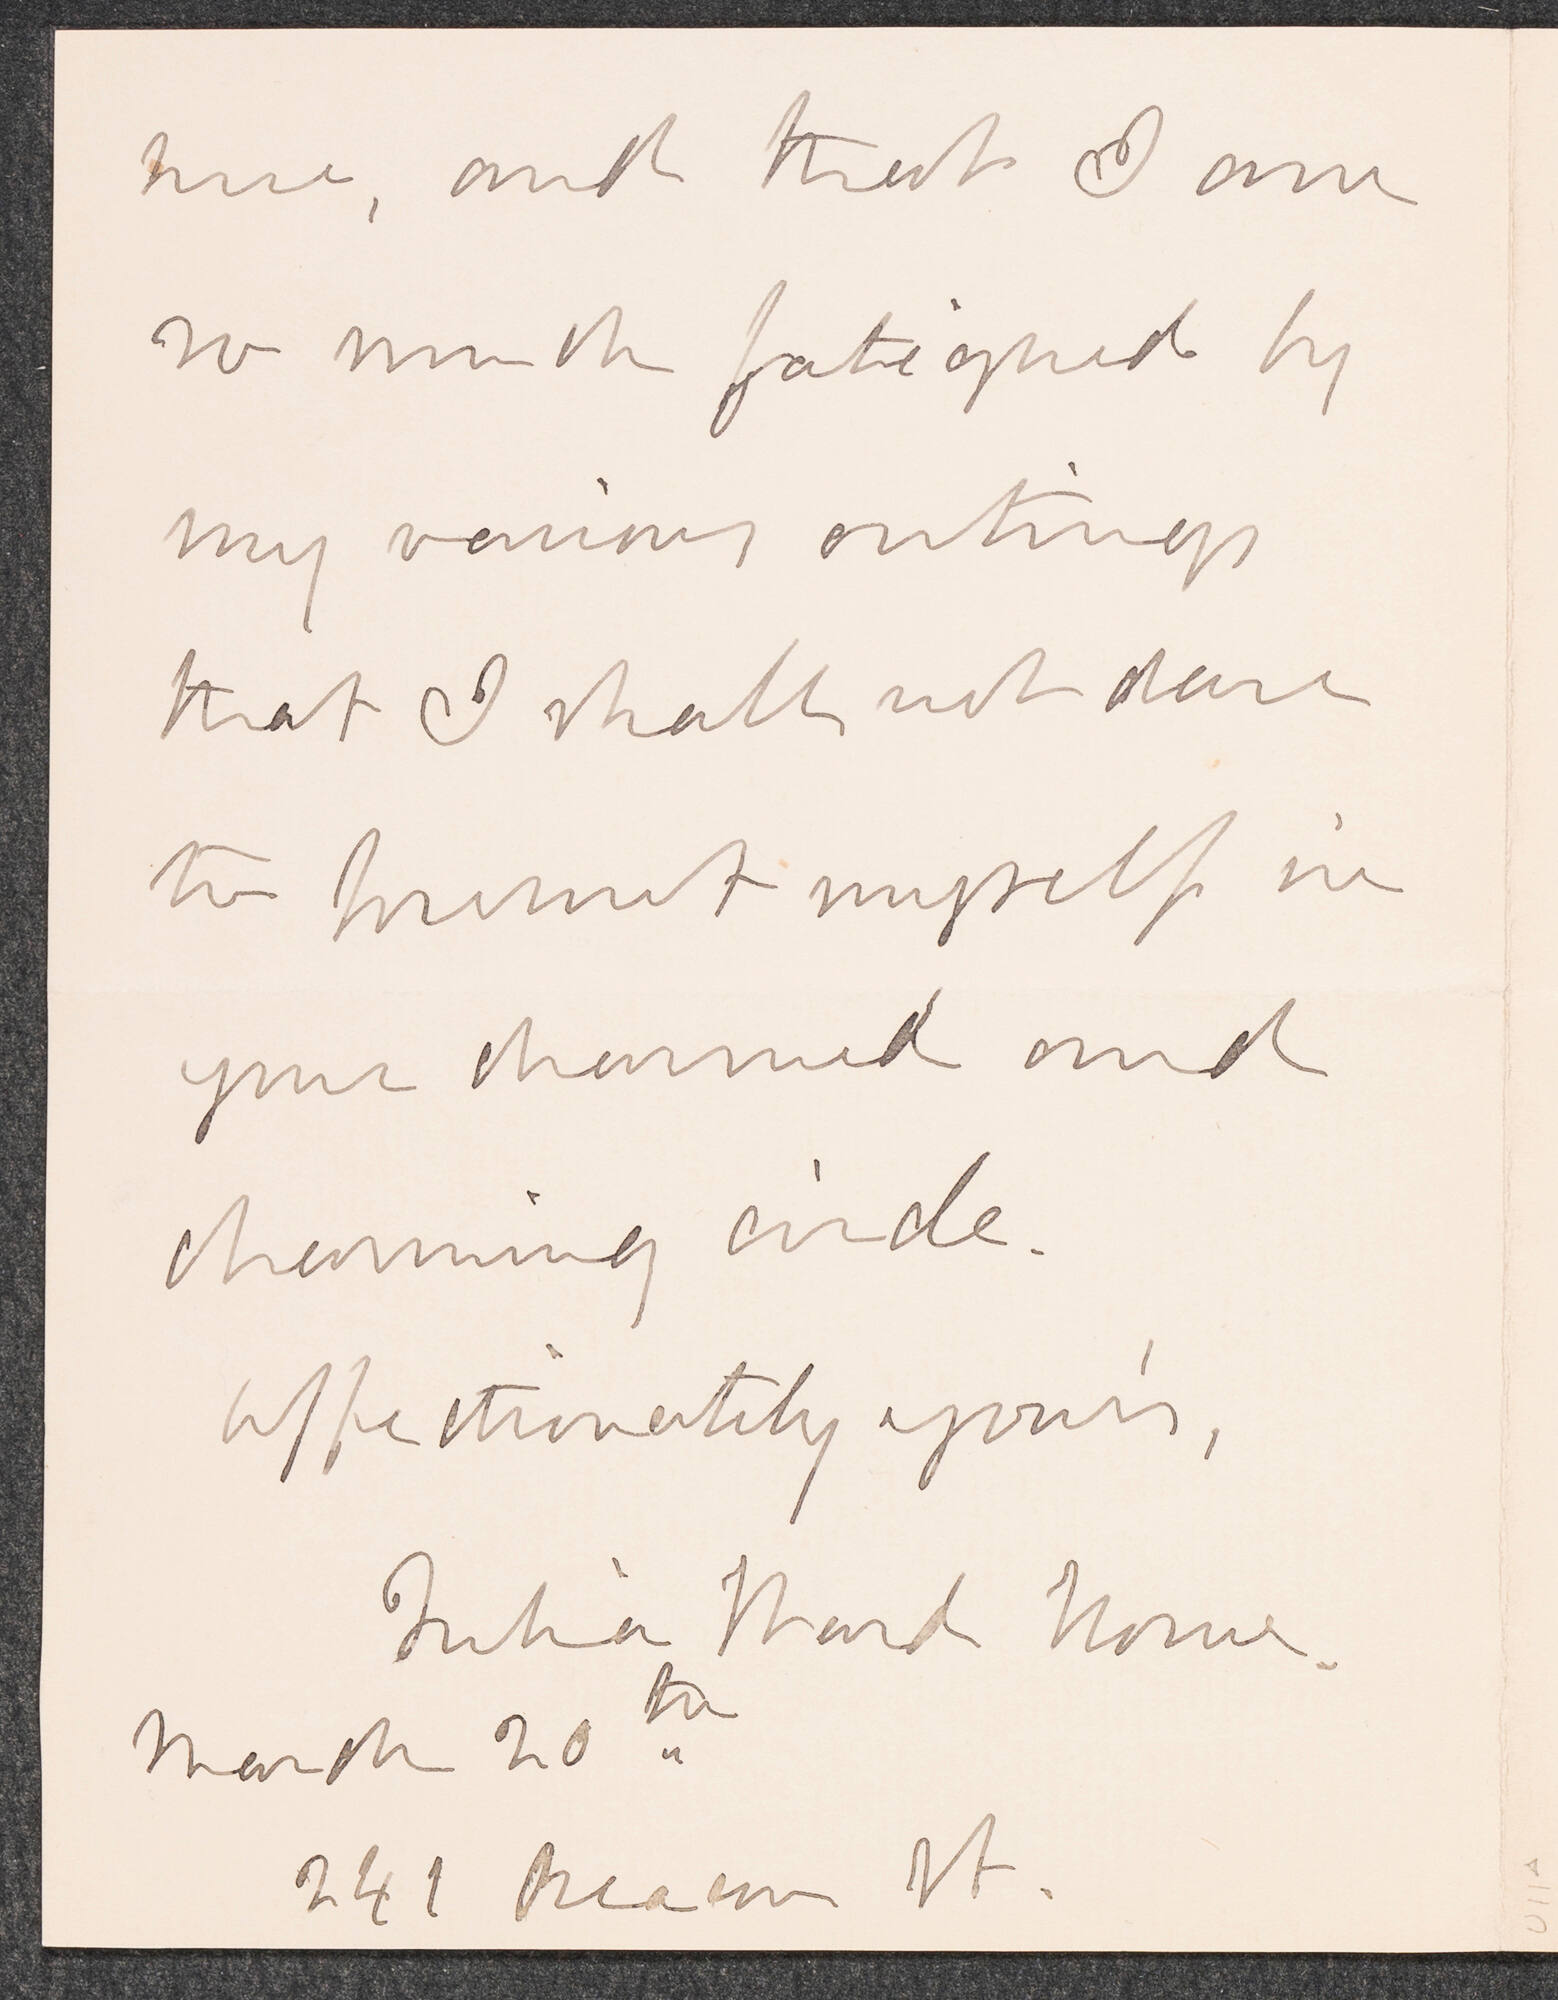 me, and that I am
so much fatigued by
my various outings
that I shall not dare
to present myself in
your charmed and
charming circle.
affectionately your's,
Julia Ward Howe.
March 20th
241 Beacon St.